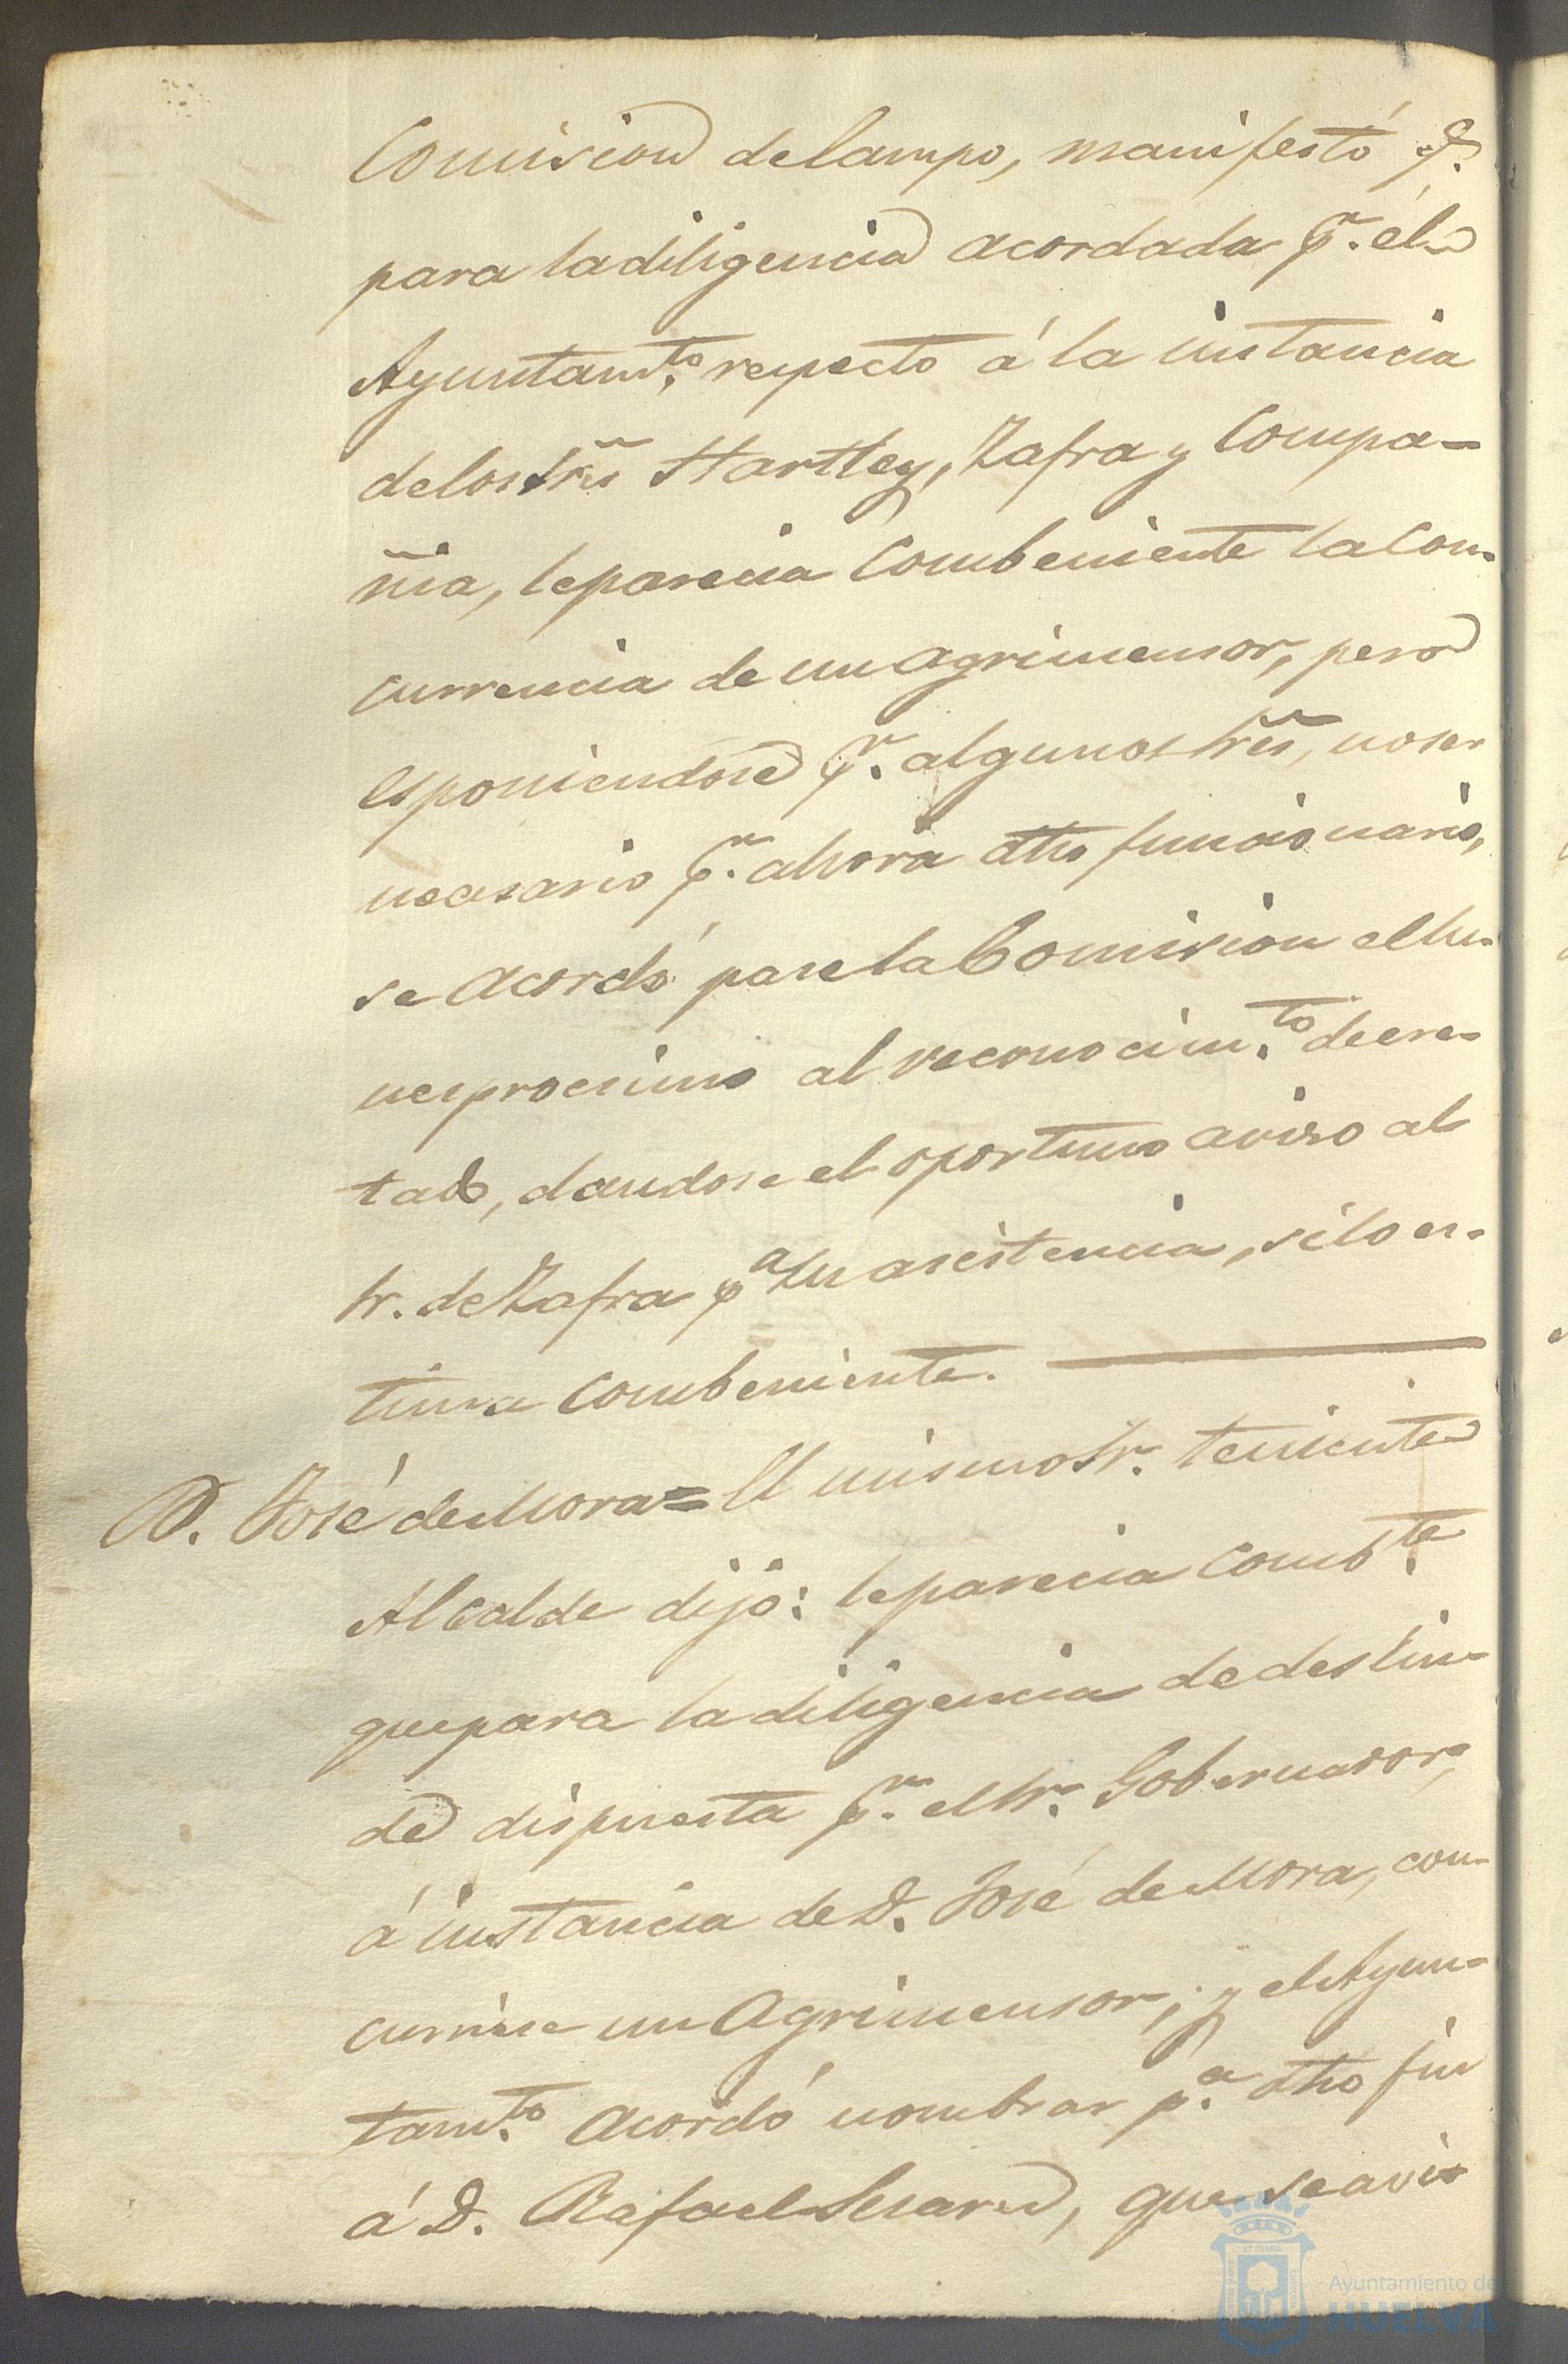 Comision del campo, manifestó q.
para la diligencia acordada p.r él
Ayuntam.to respecto á la instancia
de los Sres Hartley, Zafra y Compa-
ñia, le parecia combeniente la con-
currencia de un agrimensor, pero
esponiendose p.r algunos Sres, no ser
necesario p.r ahora dho funcionario,
se acordó pase la Comision el lu-
nes procsimo al reconocim.to decre-
tado, dandose el oportuno aviso al
Sr. de Zafra p.a su asistencia, si lo es-
tima combeniente.
D. José de Mora = El mismo Sr. teniente
Alcalde dijo: le parecia comb.te
que para la diligencia de deslin-
de dispuesta p.r el Sr. Gobernador,
á instancia de D. José de Mora, con-
curriese un Agrimensor; y el Ayun-
tam.to acordó nombrar p.a dho fin
á D. Rafael, que se avi-
Ayuntamiento de
HUELVA